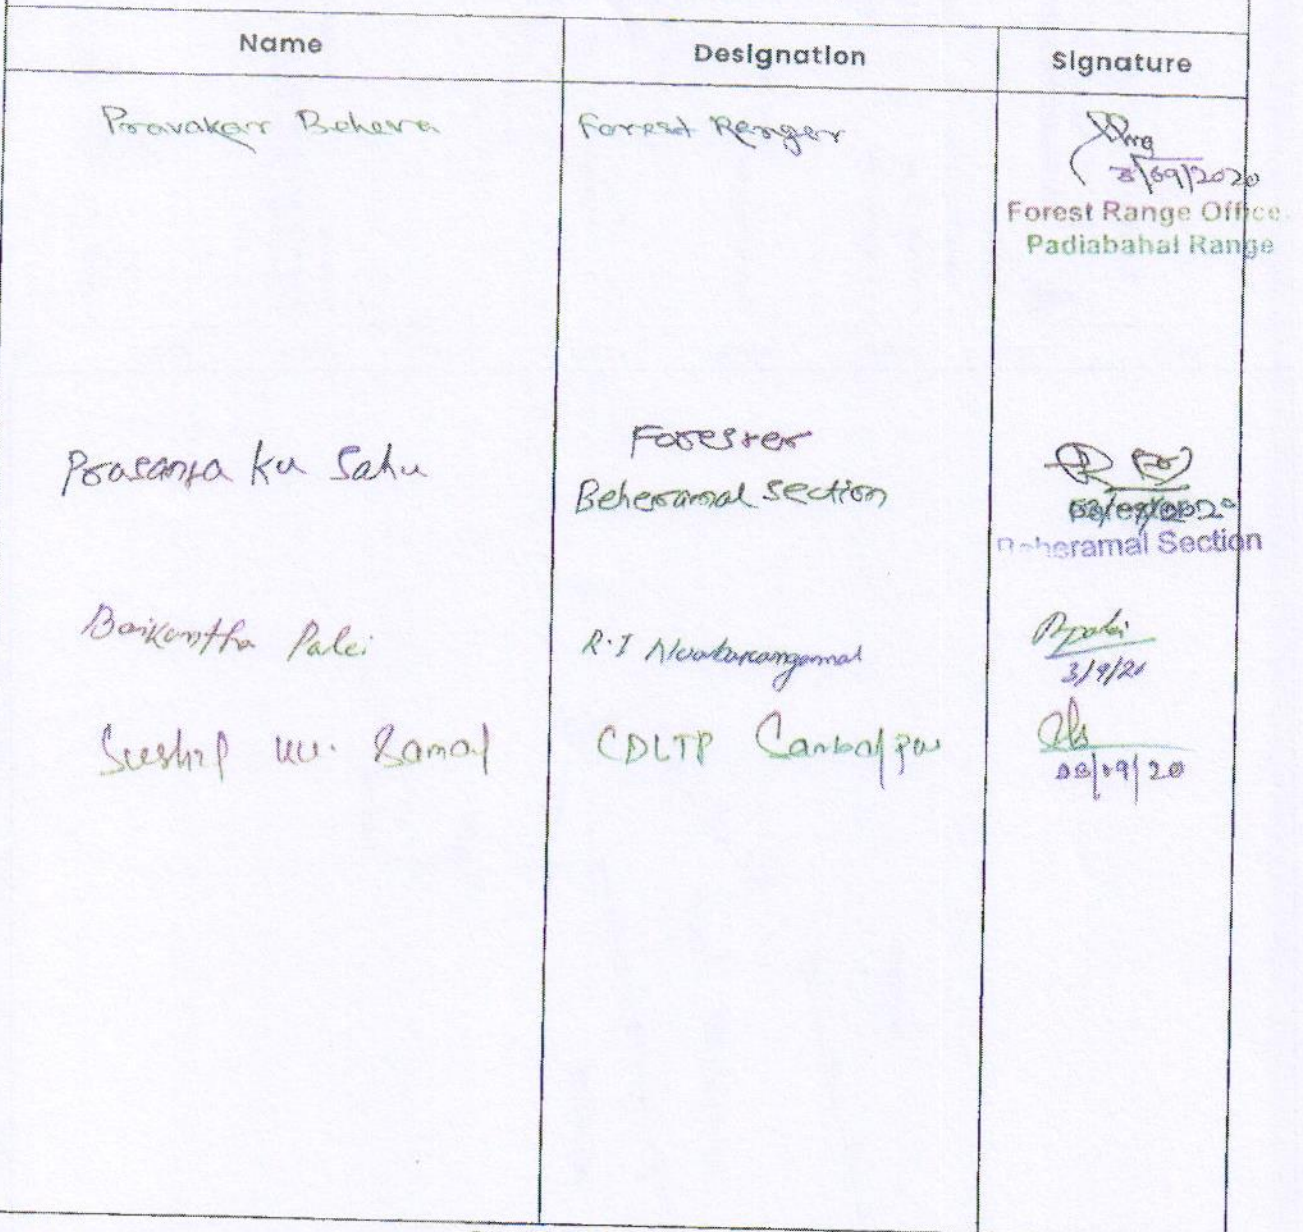 Name Designation Signature
Pravakar Behera Forest Ranger
3/09/2020
Forest Range Office
Padiabahal Range
Prasanta Ku Sahu
Forester
Beheramal Section
Beheramal Section
Baikuntha Palei R.I Nuabarangamal
3/9/20
Sushil Ku. Samal CDLTP Sambalpur
03/09/20